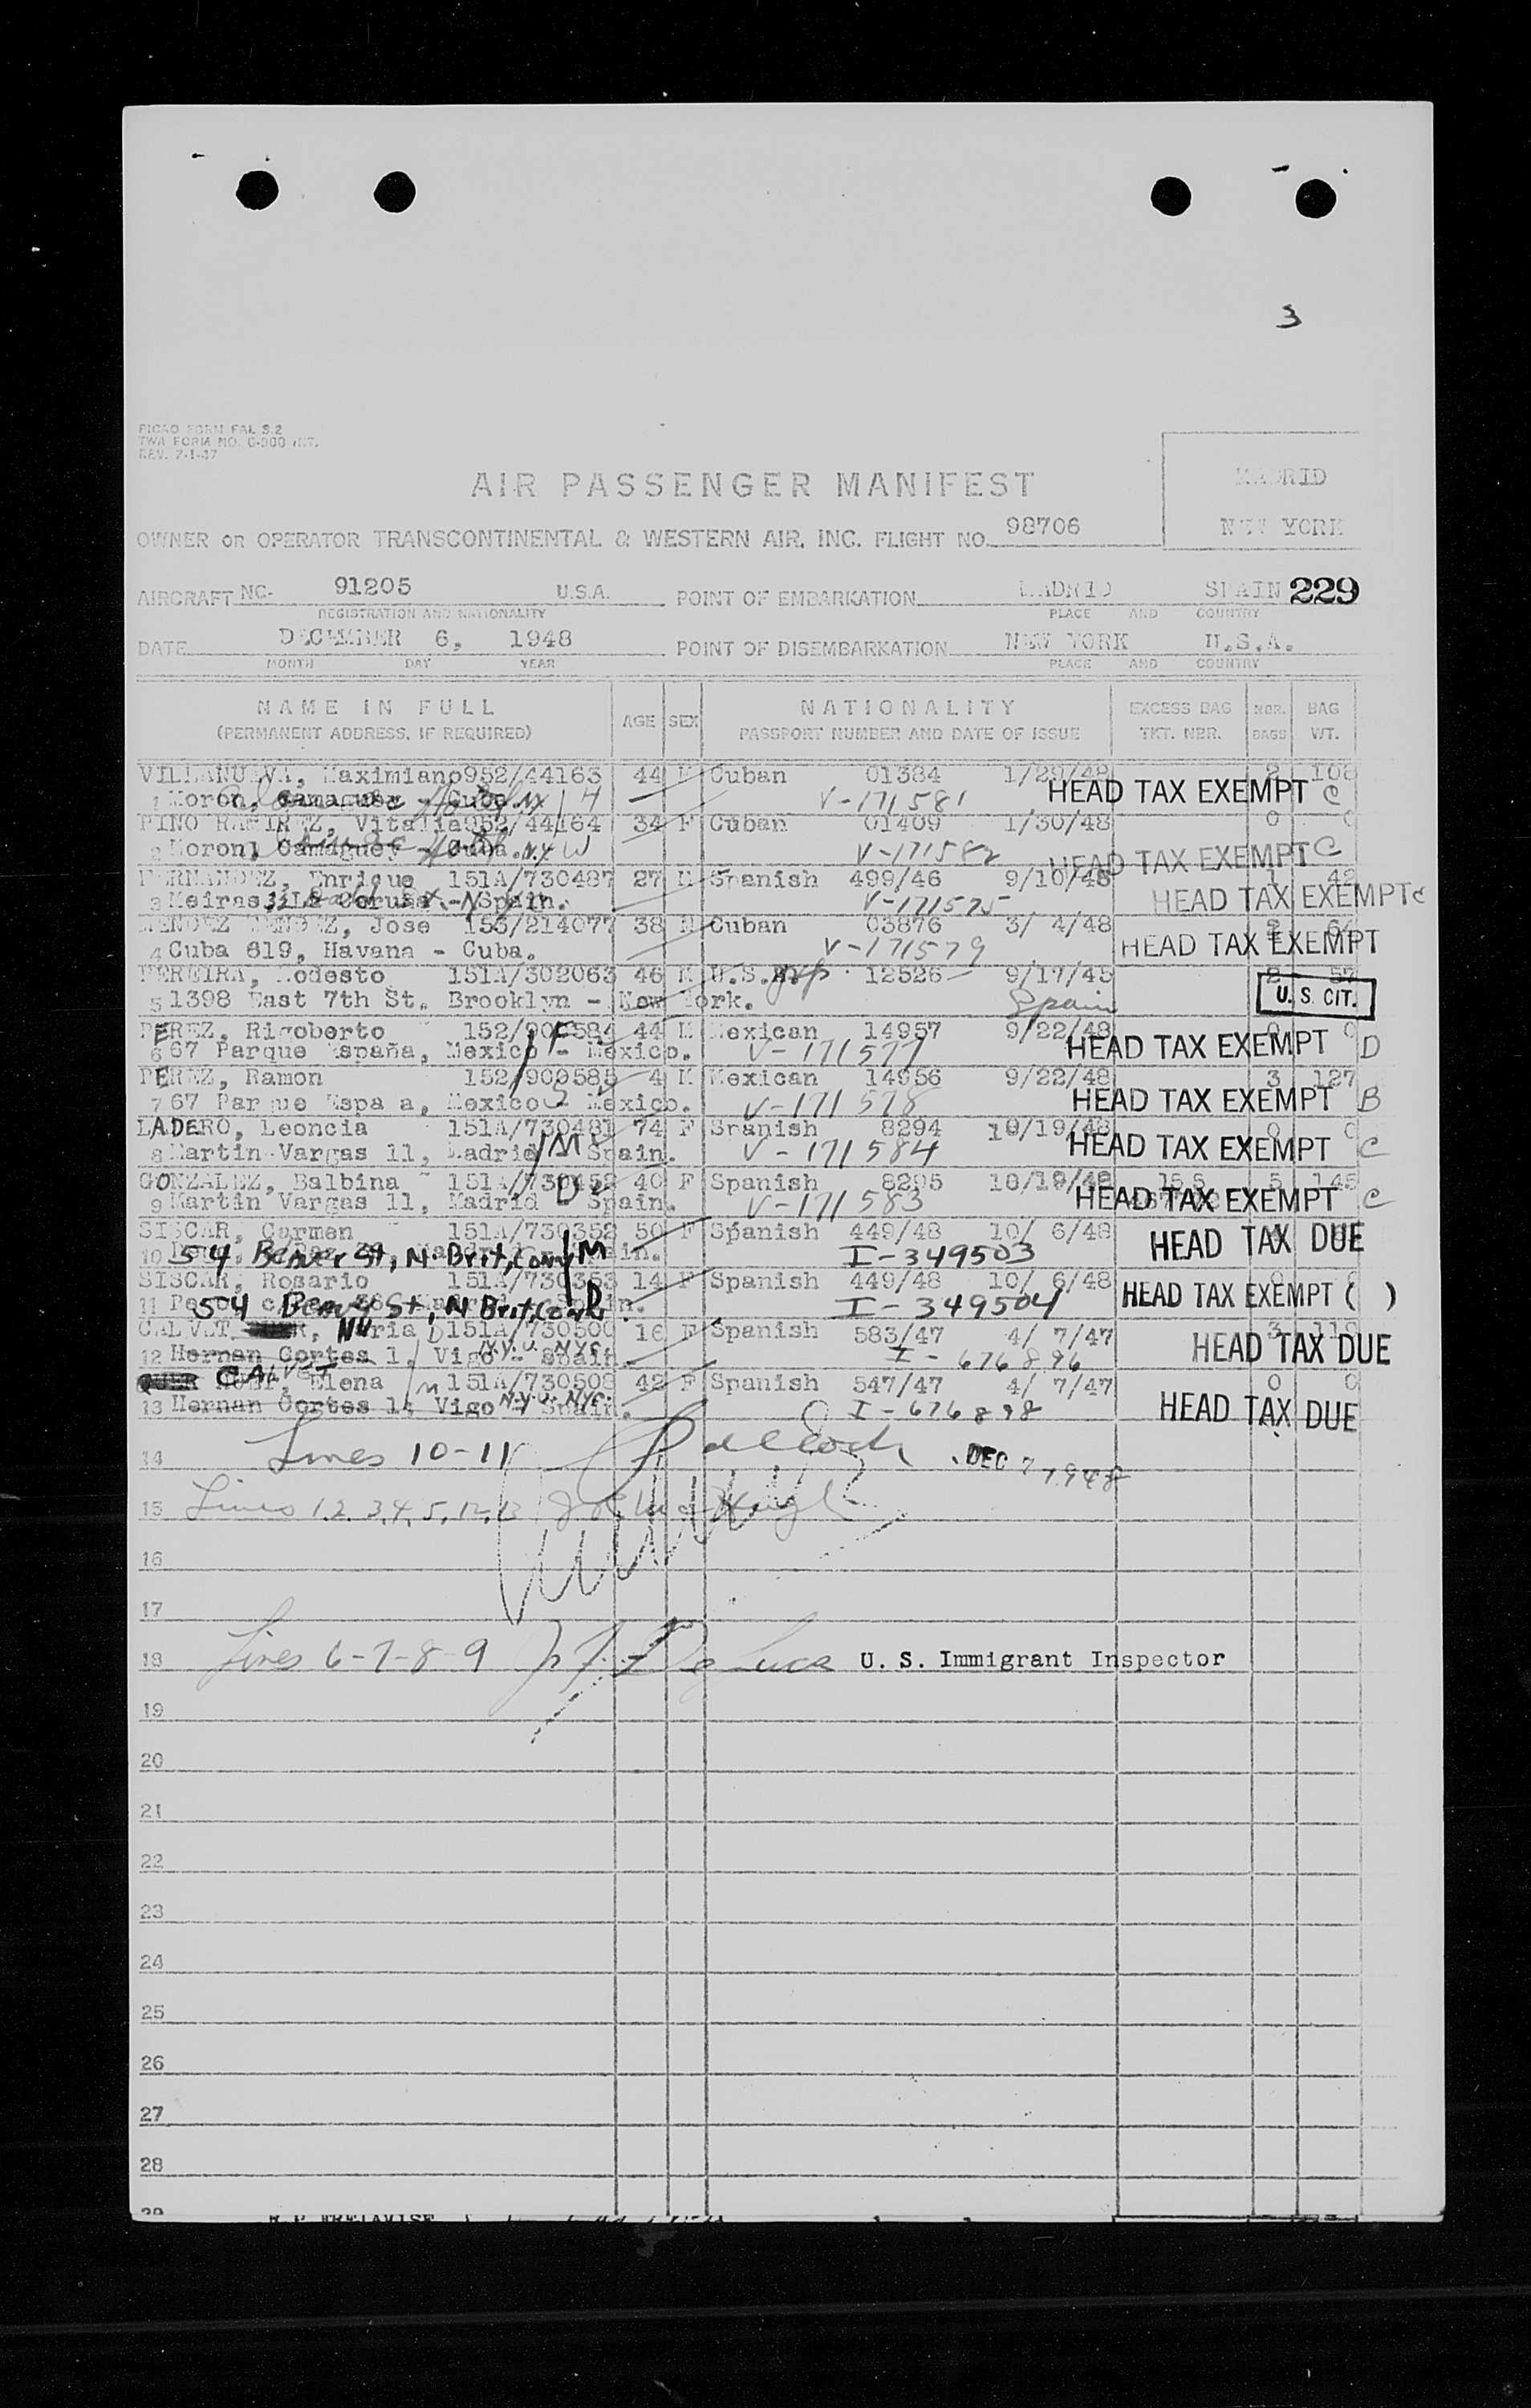 3
PICAO FORM FAL S.2
TWA FORM NO. O-800 INT.
REV. 7-1-47
AIR PASSENGER MANIFEST
MADRID
NEW YORK
OWNER OR OPERATOR TRANSCONTINENTAL & WESTERN AIR, INC. FLIGHT NO. 98706
AIRCRAFT NC- 91205 U.S.A. POINT OF EMBARKATION MADRID SPAIN 229
REGISTRATION AND NATIONALITY PLACE AND COUNTRY
DATE DECEMBER 6, 1948 POINT OF DISEMBARKATION NEW YORK U.S.A.
MONTH DAY YEAR PLACE AND COUNTRY
NAME IN FULL AGE SEX NATIONALITY EXCESS BAG NBR. BAG
(PERMANENT ADDRESS, IF REQUIRED) PASSPORT NUMBER AND DATE OF ISSUE TKT. NBR. BAGS WT.
VILLANUEVA, Maximiano 952/44163 44 M Cuban 01384 1/29/48 2 108
1 Moron, Camaguey - Cuba. NY H V-171581 HEAD TAX EXEMPT C
PINO RAMIREZ, Vitalia 952/44164 34 F Cuban 01409 1/30/48 0 0
2 Moron, Camaguey - Cuba. N.Y W V-171582 HEAD TAX EXEMPT C
FERNANDEZ, Enrique 151A/730487 27 M Spanish 499/46 9/10/48 1 42
3 Meiras, La Coruña - Spain. V-171575 HEAD TAX EXEMPT C
MENDEZ MENDEZ, Jose 153/214077 38 M Cuban 03876 3/ 4/48 2 64
4 Cuba 619, Havana - Cuba. V-171579 HEAD TAX EXEMPT
PEREIRA, Modesto 151A/302063 46 M U.S. 12526 9/17/45 2 57
5 1398 East 7th St. Brooklyn - New York. Spain U. S. CIT.
PEREZ, Rigoberto 152/900584 44 M Mexican 14957 9/22/48 0 0
6 67 Parque España, Mexico - Mexico. V-171577 HEAD TAX EXEMPT D
PEREZ, Ramon 152/900585 4 M Mexican 14956 9/22/48 3 127
7 67 Par ue Espa a, Mexico - Mexico. V-171578 HEAD TAX EXEMPT B
LADERO, Leoncia 151A/730481 74 F Spanish 8294 10/19/48 0 0
8 Martin Vargas 11, Madrid - Spain. M V-171584 HEAD TAX EXEMPT C
GONZALEZ, Balbina 151A/730482 40 F Spanish 8295 10/19/48 5 145
9 Martin Vargas 11, Madrid - Spain. D V-171583 HEAD TAX EXEMPT C
SISCAR, Carmen 151A/730352 50 F Spanish 449/48 10/ 6/48
10 54 Beaver St, N. Brit, Conn M I-349503 HEAD TAX DUE
SISCAR, Rosario 151A/730353 14 F Spanish 449/48 10/ 6/48 0 0
11 54 Beaver St, N Brit, Conn D I-349504 HEAD TAX EXEMPT ( )
CALVET Nuria D 151A/730500 16 F Spanish 583/47 4/ 7/47 3 119
12 Hernan Cortes 1, Vigo - Spain. N.Y.U. NYC. I-676896 HEAD TAX DUE
CALVET Elena M 151A/730508 42 F Spanish 547/47 4/ 7/47 0 0
13 Hernan Cortes 1, Vigo - Spain. N.Y.U. NYC. I-676898 HEAD TAX DUE
14 Lines 10-11 DEC 7 1948
15 Lines 1, 2, 3, 4, 5, 12, 13
16
17
18 Lines 6-7-8-9 De Luca U. S. Immigrant Inspector
19
20
21
22
23
24
25
26
27
28
29